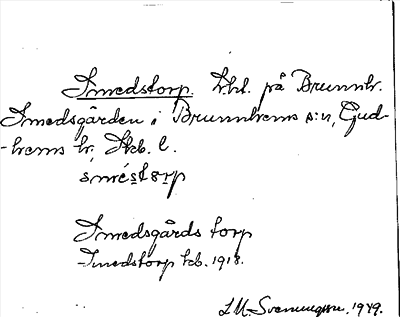 Smedstorp. Lht. på Brunnhr.
Smedsgården i Brunnhems s:n, Gud-
-hems hr, Skb. l.
smésto̲rp
Smedsgårds torp
Smedstorp kb. 1918.
1949.